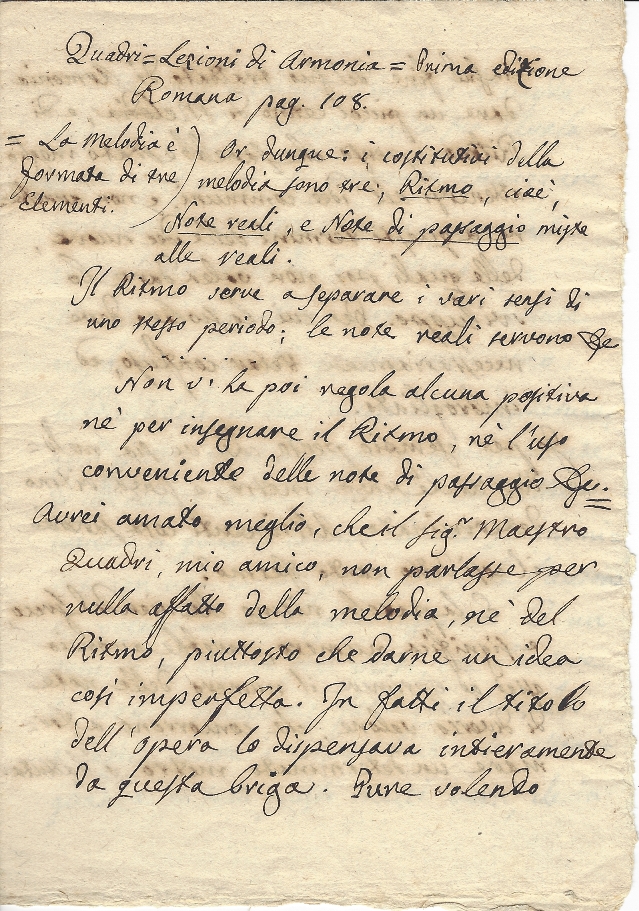 Quadri = Lezioni di Armonia = Prima edizione
Romana pag. 108.
= La Melodia è
formata di tre
Elementi.
Or dunque: i costitutivi della
melodia sono tre; Ritmo, cioè,
Note reali, e Note di passaggio miste
alle reali.
Il Ritmo serve a separare i vari sensi di
uno stesso periodo; le note reali servono &c
Non v'ha poi regola alcuna positiva
nè per insegnare il Ritmo, nè l'uso
conveniente delle note di passaggio &c. =
Avrei amato meglio, che il Sig.r Maestro
Quadri, mio amico, non parlasse per
nulla affatto della melodia, nè del
Ritmo, piuttosto che darne un idea
così imperfetta. In fatti il titolo
dell'opera lo dispensava intieramente
da questa briga. Pure volendo